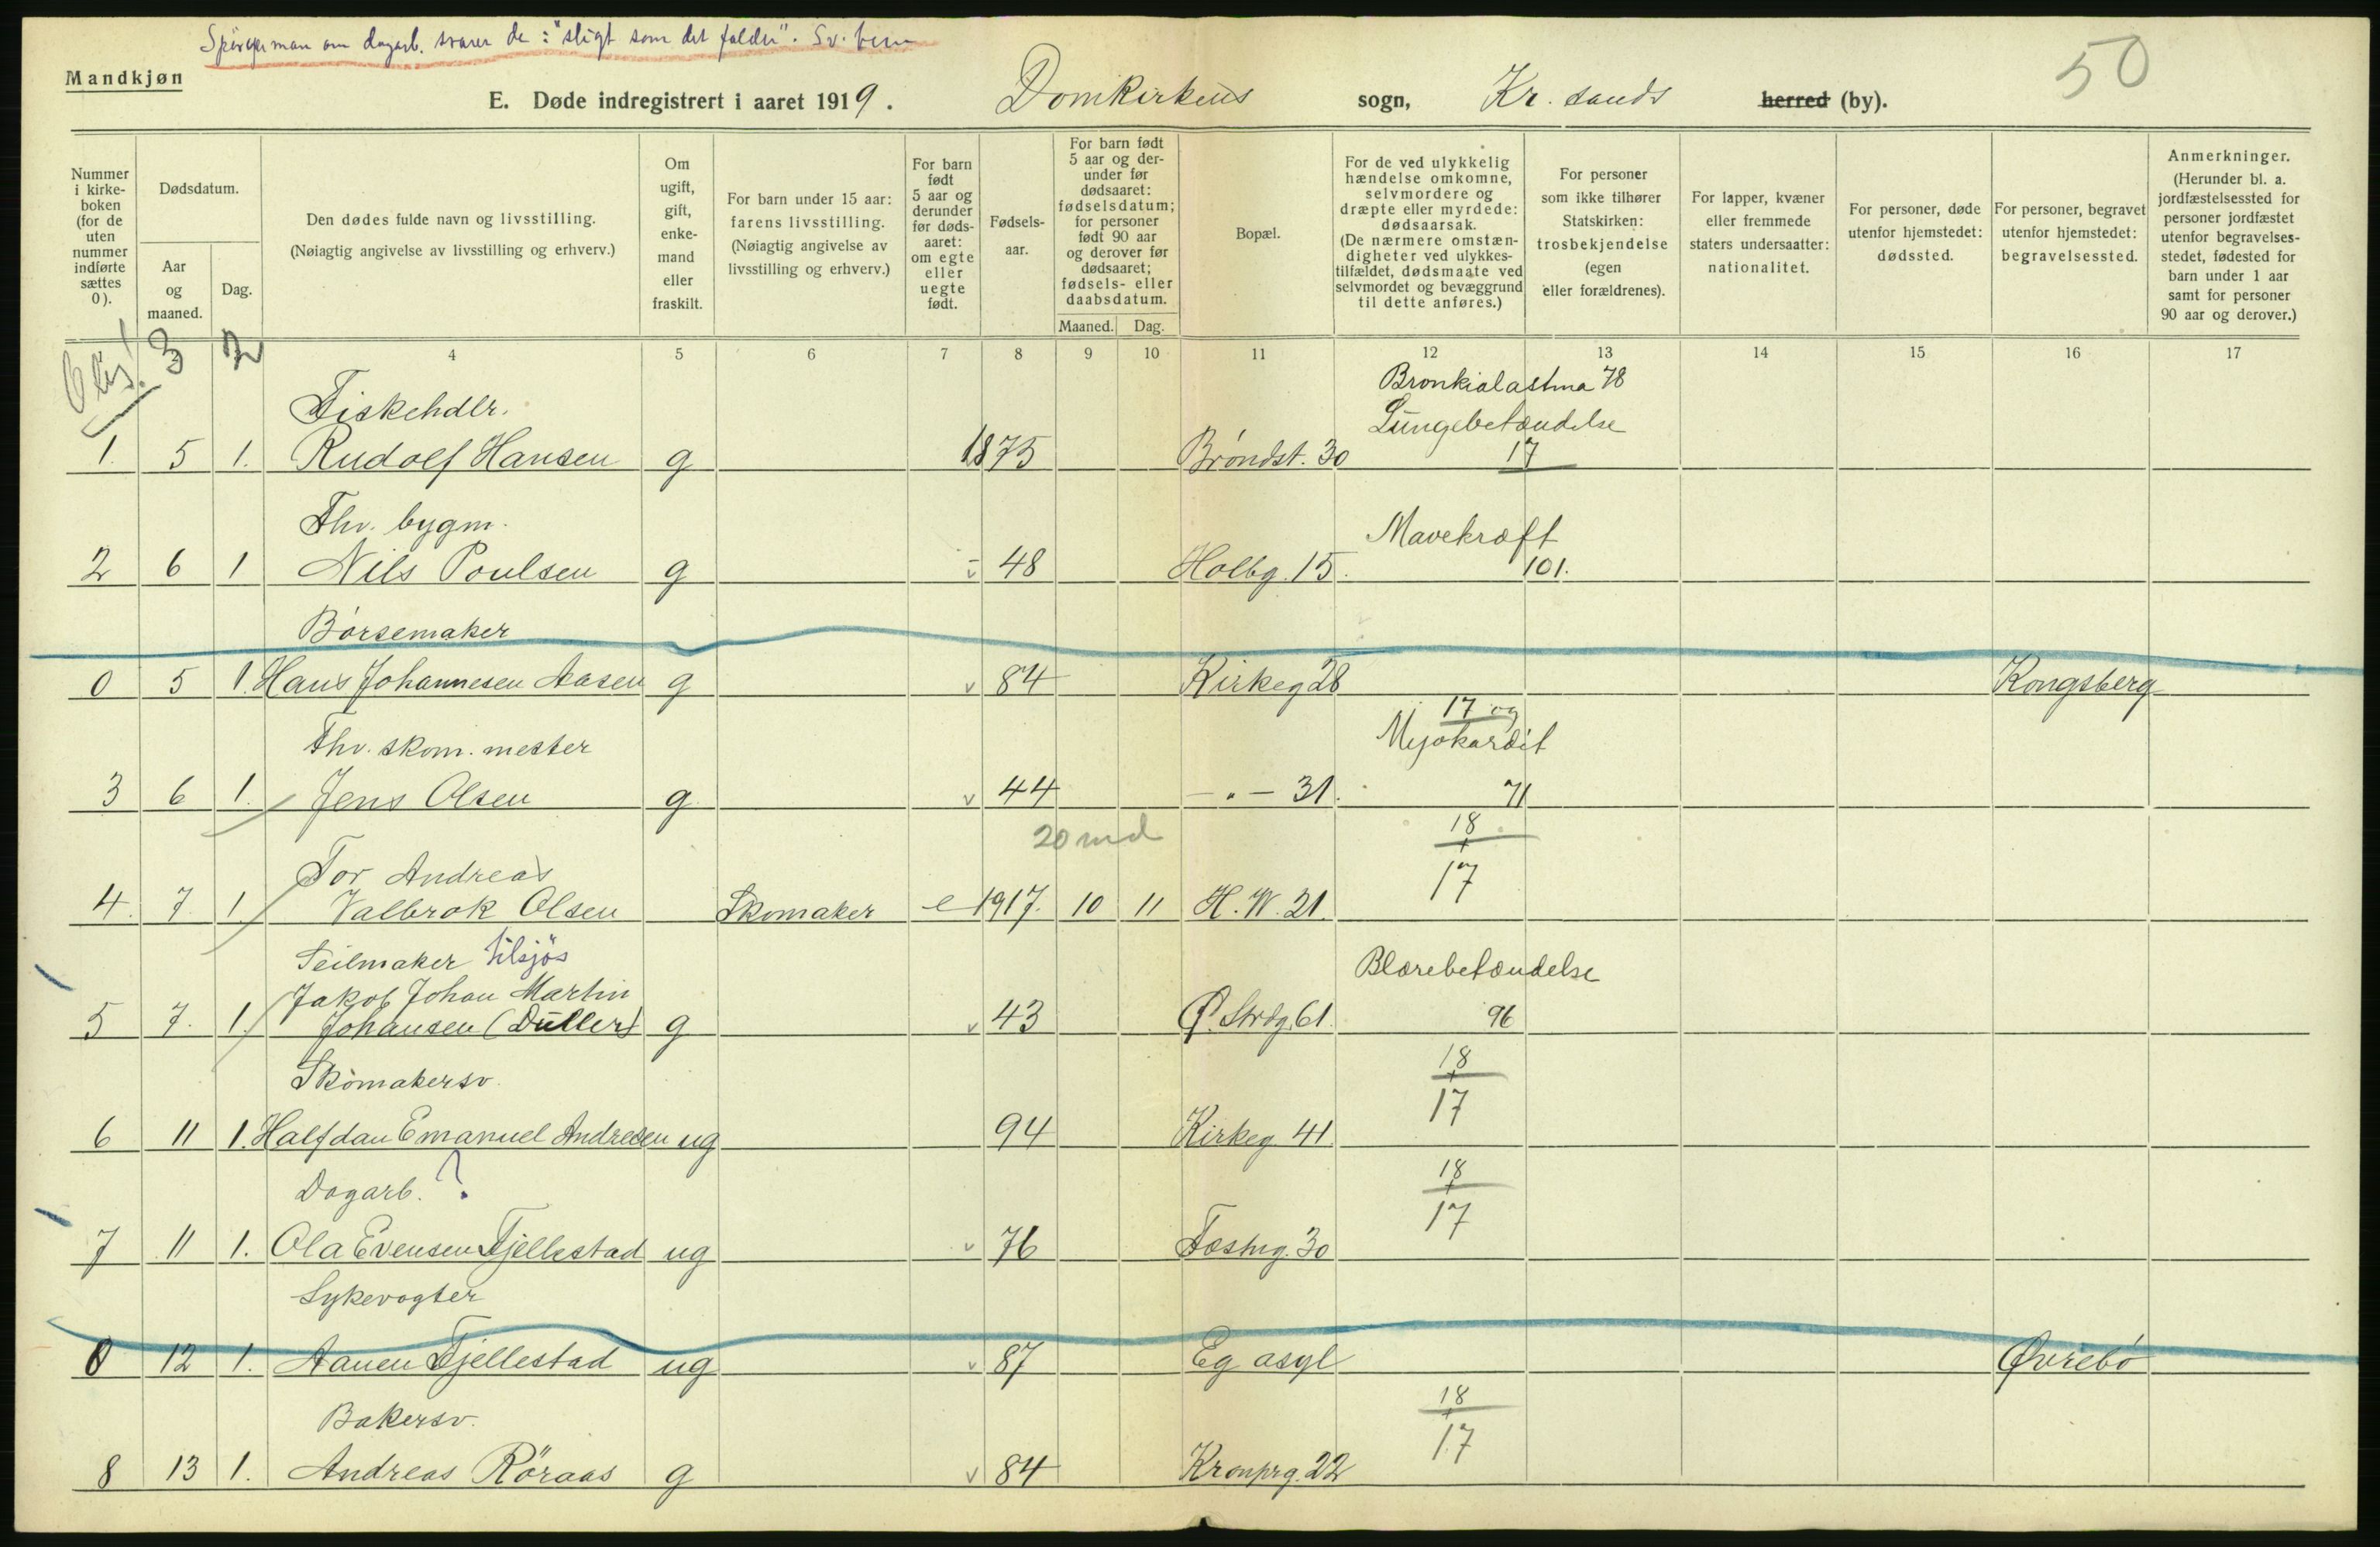 Spørger man om dagarb. svarer de: "sligt som det falder". Sv.
50
Mandkjøn
E. Døde indregistrert i aaret 1919. Domkirkens sogn, Kr. sands herred (by).
Nummer i kirke-boken (for de uten nummer indførte sættes 0).
Dødsdatum.
Aar og maaned.
Dag.
Den dødes fulde navn og livsstilling.
(Nøiagtig angivelse av livsstilling og erhverv.)
Om ugift, gift, enke-mand eller fraskilt.
For barn under 15 aar: farens livsstilling.
(Nøiagtig angivelse av livsstilling og erhverv.)
For barn født 5 aar og derunder før døds-aaret: om egte eller uegte født.
Fødsels-aar.
For barn født 5 aar og der-under før dødsaaret: fødselsdatum; for personer født 90 aar og derover før dødsaaret; fødsels- eller daabsdatum.
Maaned. Dag.
Bopæl.
For de ved ulykkelig hændelse omkomne, selvmordere og dræpte eller myrdede: dødsaarsak.
(De nærmere omstæn-digheter ved ulykkes-tilfældet, dødsmaate ved selvmordet og bevæggrund til dette anføres.)
For personer som ikke tilhører Statskirken: trosbekjendelse (egen eller forældrenes).
For lapper, kvæner eller fremmede staters undersaatter: nationalitet.
For personer, døde utenfor hjemstedet: dødssted.
For personer, begravet utenfor hjemstedet: begravelsessted.
Anmerkninger.
(Herunder bl. a. jordfæstelsessted for personer jordfæstet utenfor begravelses-stedet, fødested for barn under 1 aar samt for personer 90 aar og derover.)
3 2 4 5 6 7 8 9 10 11 12 13 14 15 16 17
Fiskehdlr. Bronkialastma 78
Lungebetændelse
1. 5 1. Rudolf Hansen g 1875 Brøndst. 30 17
Fhv. bygm. Mavekræft
2 6 1 Nils Poulsen g - 48 Holbg. 15. 101.
Børsemaker
0 5 1. Hans Johannesen Aasen g v 84 Kirkeg 28 Kongsberg
17 og
Fhv. skom. mester Myokardit
3 6 1. Jens Olsen g. v 44 - " - 31. 71
20 md 18
Tor Andreas 17
4. 7 1. Valbrok Olsen Skomaker e 1917. 10 11 H. W. 21.
Seilmaker tilsjøs Blærebetændelse
Jakob Johan Martin
5 7. 1. Johansen (Düller) g v 43 Ø. Strdg. 61. 96
18
Skomakersv. 17
6 11 1. Halfdan Emanuel Andresen ug 94 Kirkeg 41.
18
Dagarb. ? 17
7 11 1. Ola Evensen Fjellestad ug v 76 Fæstng. 30
Sykevogter
0 12 1. Aanen Fjellestad ug v 87 Eg asyl Øvrebø
18
Bakersv. 17
8 13 1. Andreas Röraas g v 84 Kronprg. 22